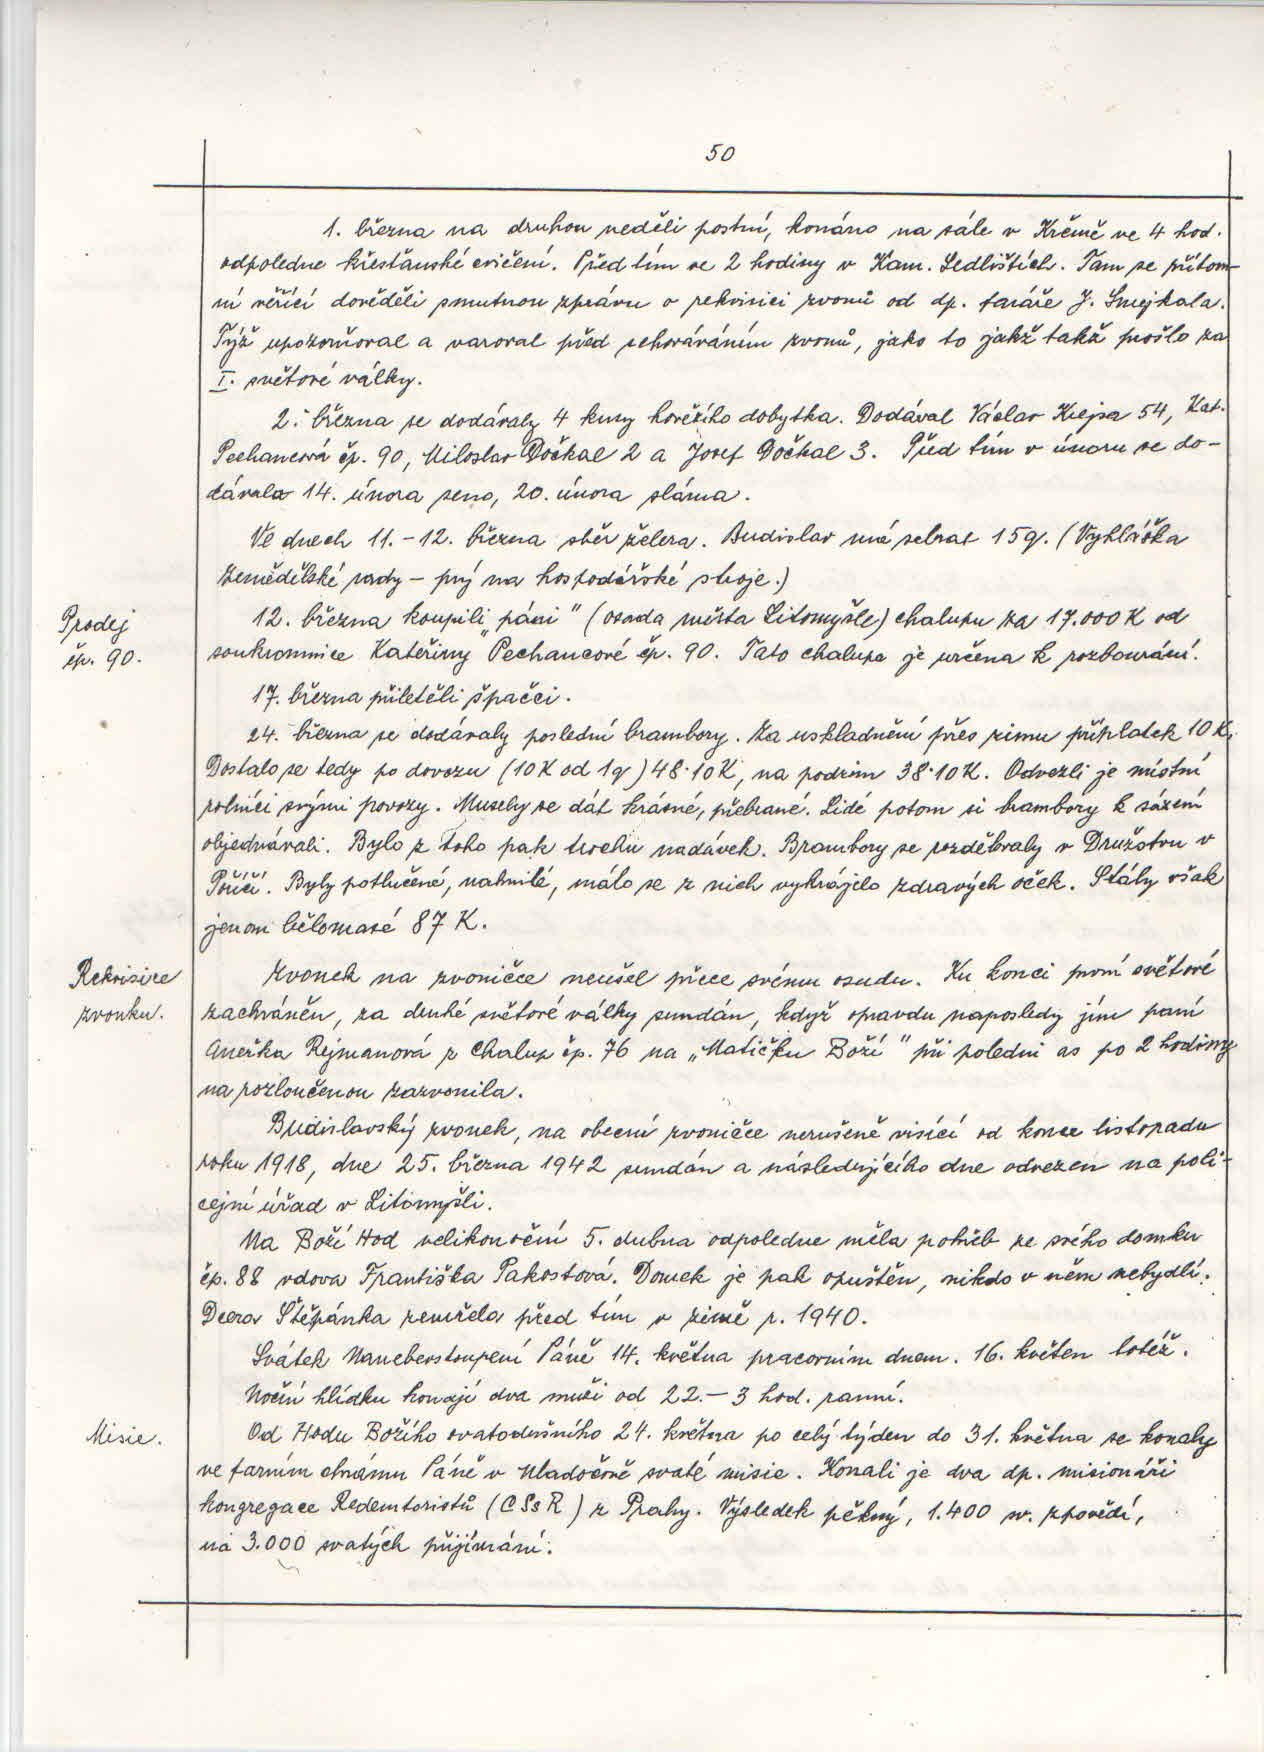 50
1. března na druhou neděli postní, konáno na sále v Krčmě ve 4 hod.
odpoledne křesťanské cvičení. Před tím ve 2 hodiny v Kam. Sedlištích. Tam se přítom-
ní věřící dověděli smutnou zprávu o rekvisici zvonů od dp. faráře J. Smejkala.
Týž upozorňoval a varoval před schováváním zvonů, jako to jakž takž prošlo za
I. světové války.
2. března se dodávaly 4 kusy hovězího dobytka. Dodával Václav Krejsa 54, Kat.
Pechancová čp. 90, Miloslav Dočkal 2 a Josef Dočkal 3. Před tím v únoru se do-
dávala 14. února seno, 20. února sláma.
Ve dnech 11.-12. března sběr železa. Budislav má sebrat 15q. (Vyhláška
zemědělské rady - prý na hospodářské stroje.)
Prodej
čp. 90.
12. března koupili „páni" (osada města Litomyšle) chalupu za 17.000 K od
soukromnice Kateřiny Pechancové čp. 90. Tato chalupa je určena k rozbourání.
17. března přiletěli špačci.
24. března se dodávaly poslední brambory. Za uskladnění přes zimu příplatek 10 K,
Dostalo se tedy po dovozu (10 K od 1q) 48·10 K, na podzim 38·10 K. Odvezli je místní
rolníci svými povozy. Musely se dát krásné, přebrané. Lidé potom si brambory k sázení
objednávali. Bylo z toho pak trochu nadávek. Brambory se rozdělovaly v Družstvu v
Poříčí. Byly potlučené, nahnilé, málo se z nich vykrájelo zdravých oček. Stály však
jenom bělomasé 87 K.
Rekvisice
zvonku.
Zvonek na zvoničce neušel přece svému osudu. Ku konci první světové
zachráněn, za druhé světové války sundán, když opravdu naposledy jím paní
Anežka Rejmanová z Chalup čp. 76 na „Matičku Boží" při poledni as po 2 hodiny
na rozloučenou zazvonila.
Budislavský zvonek, na obecní zvoničce nerušeně visící od konce listopadu
roku 1918, dne 25. března 1942 sundán a následujícího dne odvezen na poli-
cejní úřad v Litomyšli.
Na Boží Hod velikonoční 5. dubna odpoledne měla pohřeb ze svého domku
čp. 88 vdova Františka Pakostová. Domek je pak opuštěn, nikdo v něm nebydlí.
Dcera Štěpánka zemřela před tím v zimě r. 1940.
Svátek Nanebevstoupení Páně 14. května pracovním dnem. 16. květen totéž.
Noční hlídku konají dva muži od 22.-3 hod. ranní.
Misie.
Od Hodu Božího svatodušního 24. května po celý týden do 31. května se konaly
ve farním chrámu Páně v Mladočově svaté misie. Konali je dva dp. misionáři
kongregace Redemtoristů (CSsR) z Prahy. Výsledek pěkný, 1.400 sv. zpovědí,
na 3.000 svatých přijímání.